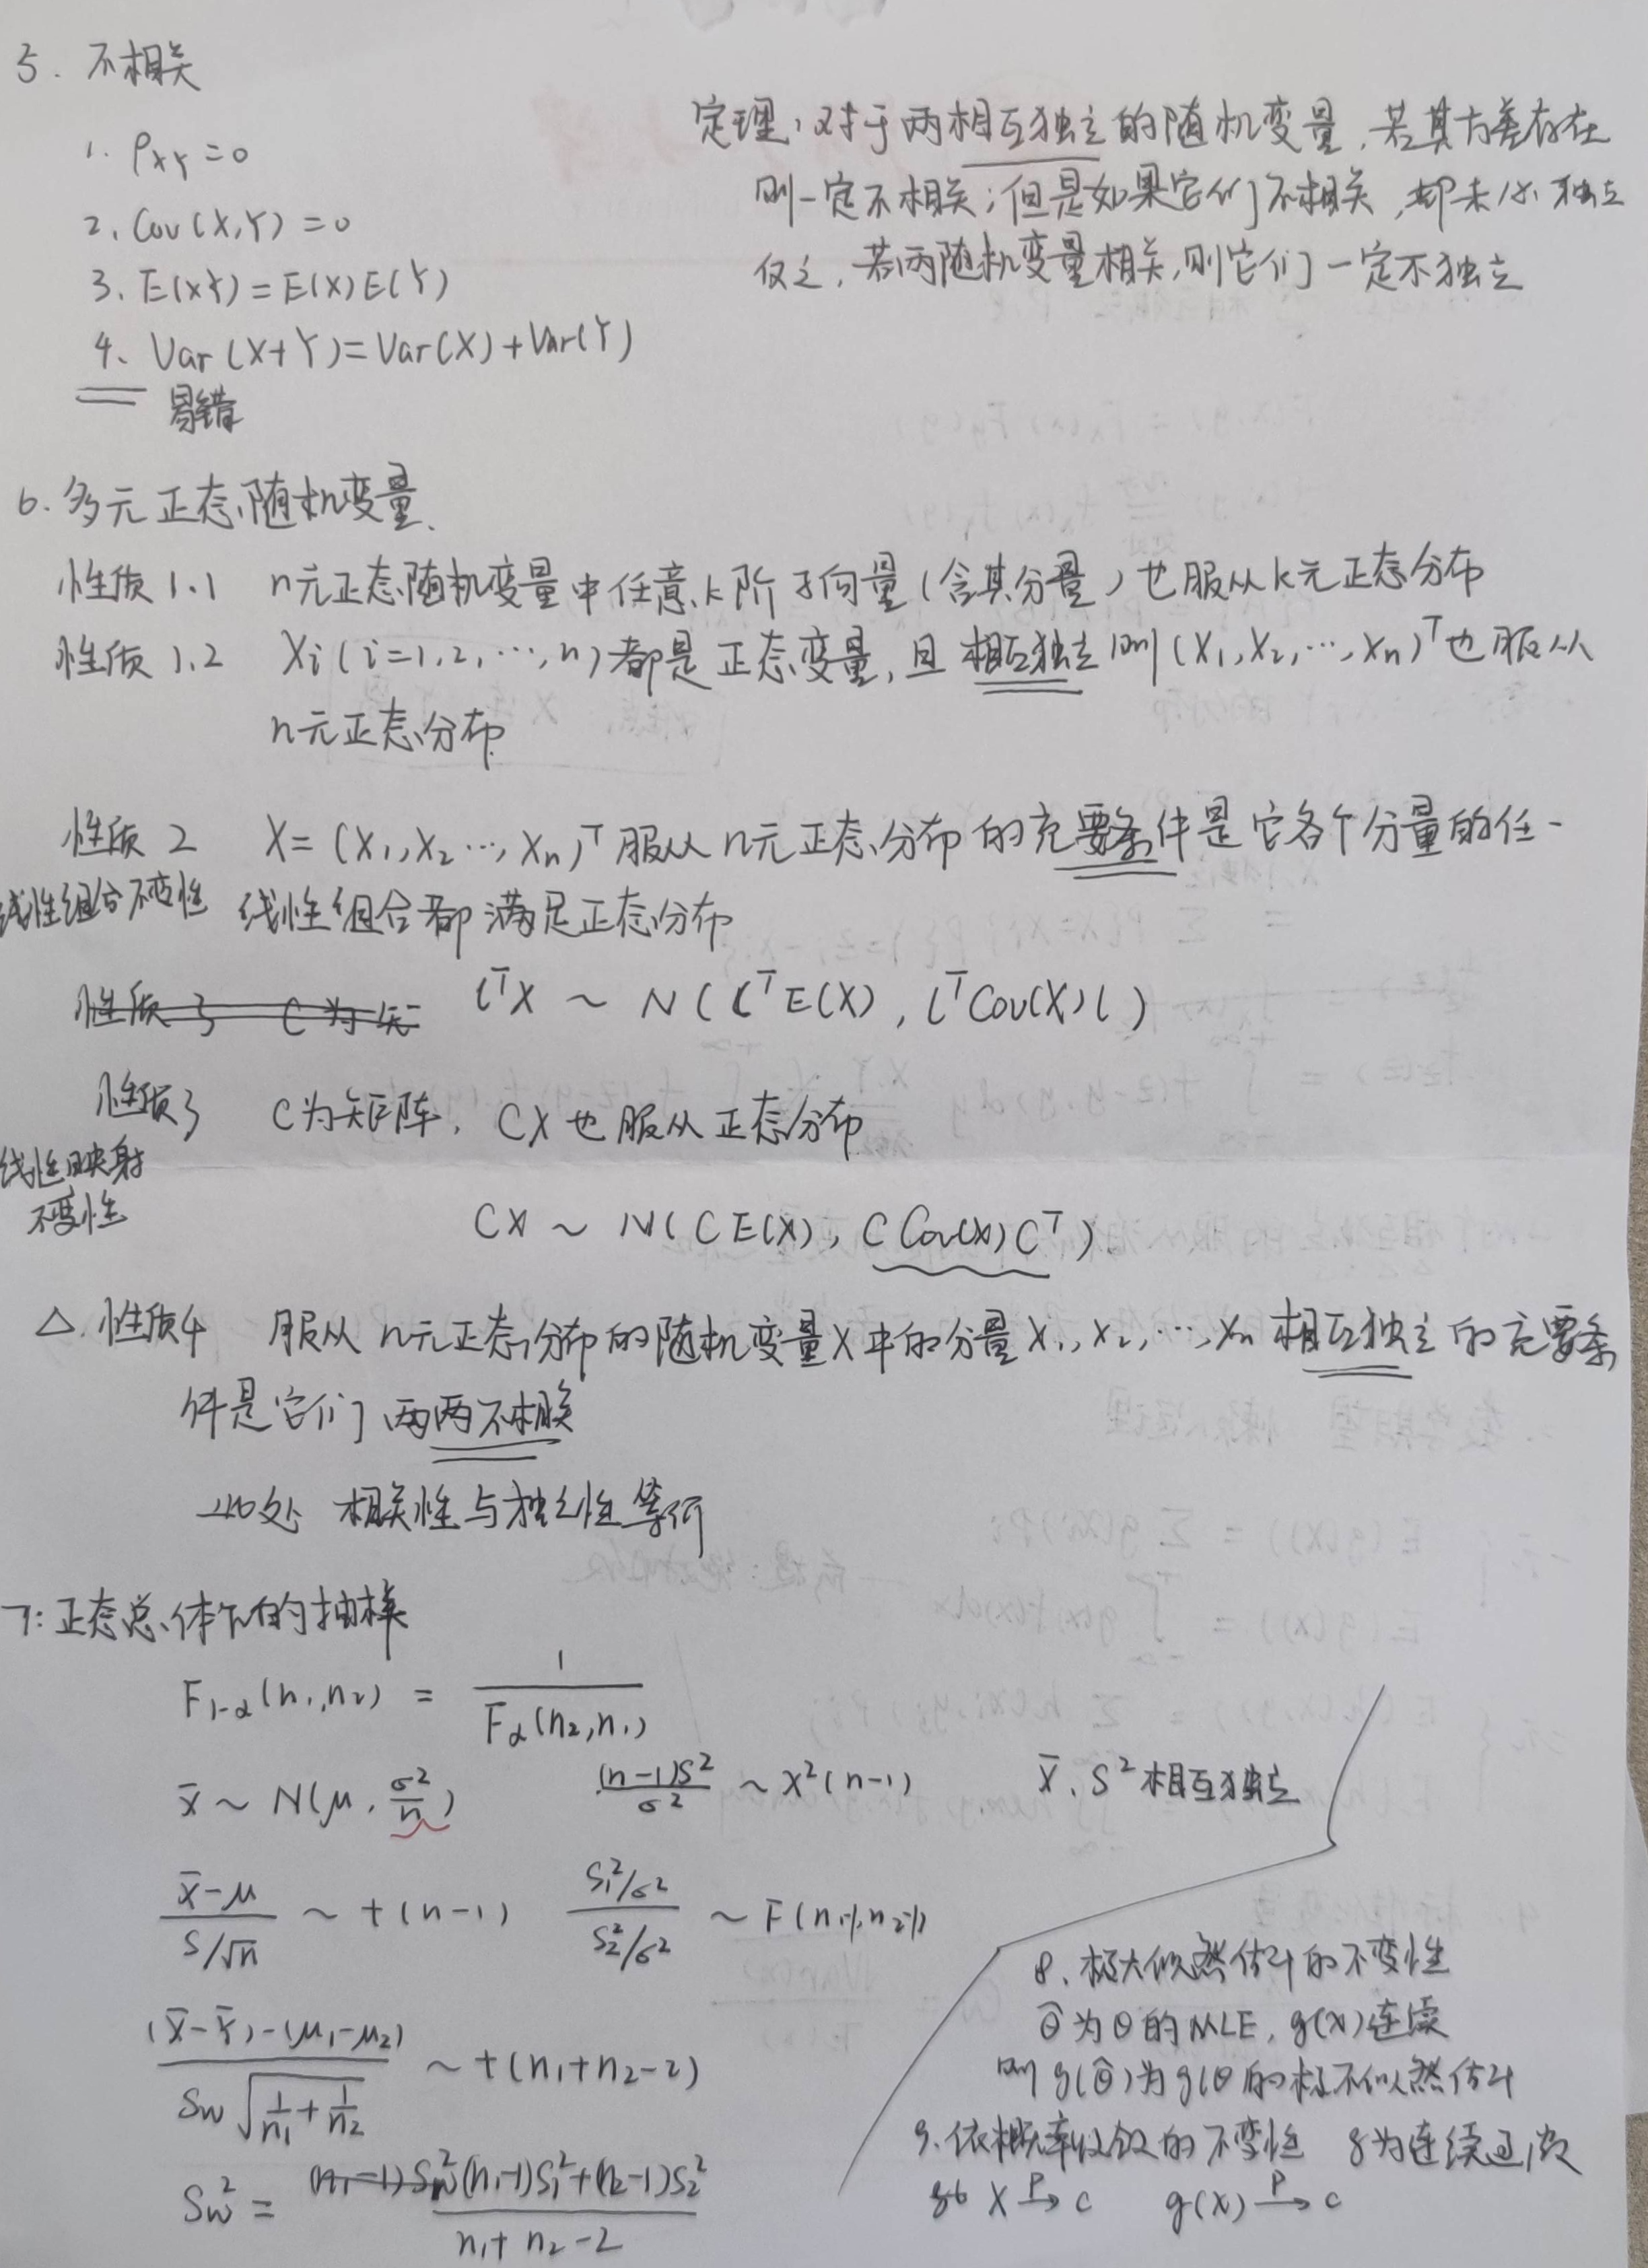 5. 不相关
1. ρxy = 0
2. Cov(X,Y) = 0
3. E(XY) = E(X)E(Y)
4. Var(X+Y) = Var(X) + Var(Y)
易错
定理:对于两相互独立的随机变量,若其方差存在
则一定不相关;但是如果它们不相关,却未必独立
反之,若两随机变量相关,则它们一定不独立
6. 多元正态随机变量.
性质 1.1 n元正态随机变量中任意k阶子向量(含其分量)也服从k元正态分布
性质 1.2 Xi(i=1,2,…,n)都是正态变量,且相互独立则(X₁,X₂,…,Xn)ᵀ也服从
n元正态分布
性质 2 X=(X₁,X₂…,Xn)ᵀ服从n元正态分布的充要条件是它各个分量的任一
线性组合不变性 线性组合都满足正态分布
性质3 C为矢 lᵀX ~ N(lᵀE(X), lᵀCov(X)l)
性质3 C为矩阵, CX也服从正态分布
线性映射
不变性
CX ~ N(CE(X), C Cov(X)Cᵀ).
△.性质4 服从n元正态分布的随机变量X中的分量X₁,X₂,…,Xn相互独立的充要条
件是它们两两不相关
此处 相关性与独立性等价
7: 正态总体下的抽样
F₁₋α(n₁,n₂) = 1/Fα(n₂,n₁)
X̄ ~ N(μ, σ²/n) (n-1)S²/σ² ~ χ²(n-1) X̄, S²相互独立
(X̄-μ)/(S/√n) ~ t(n-1) (S₁²/σ²)/(S₂²/σ²) ~ F(n₁-1,n₂-1)
((X̄-Ȳ)-(μ₁-μ₂))/(Sw√(1/n₁+1/n₂)) ~ t(n₁+n₂-2)
Sw² = ((n₁-1)S₁²+(n₂-1)S₂²)/(n₁+n₂-2)
8. 极大似然估计的不变性
θ̂为θ的MLE, g(x)连续
则g(θ̂)为g(θ的极大似然估计
9. 依概率收敛的不变性 g为连续函数
X →ᴾ c g(X) →ᴾ c